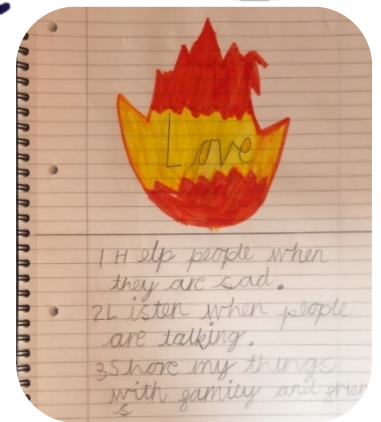 Love
1 Help people when
they are sad.
2 Listen when people
are talking.
3 Share my things
with family and frien
s